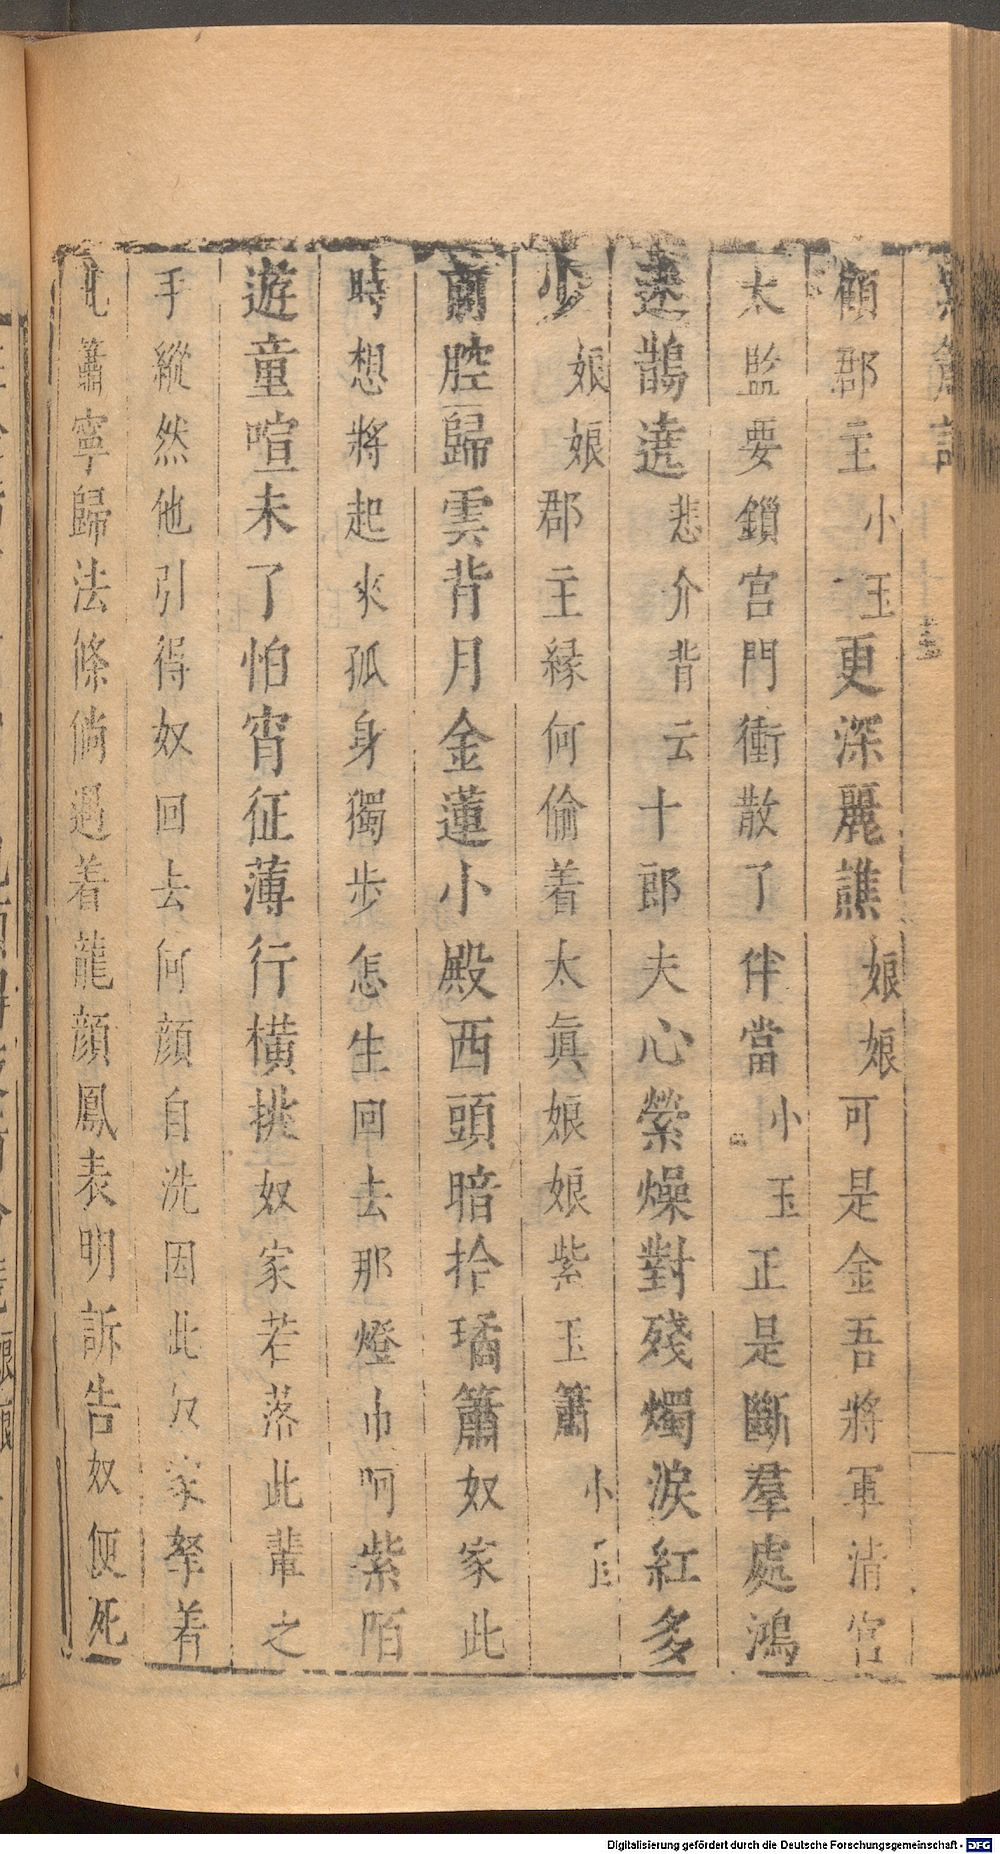 顧郡主小玉更深麗譙娘娘可是金吾將軍清宮
太監要鎖宮門衝散了伴當小玉正是斷羣處鴻
遠鵲遶悲介背云十郎夫心縈燥對殘燭淚紅多
少娘娘郡主緣何偷着太眞娘娘紫玉簫小玉
前腔歸雲背月金蓮小殿西頭暗拾璚簫奴家此
時想將起來孤身獨步怎生回去那燈巾呵紫陌
遊童喧未了怕宵征薄行橫挑奴家若落此輩之
手縱然他引得奴回去何顏自洗因此奴家拏着
此簫寧歸法條倘遇着龍顏鳳表明訴告奴便死
Digitalisierung gefördert durch die Deutsche Forschungsgemeinschaft - DFG